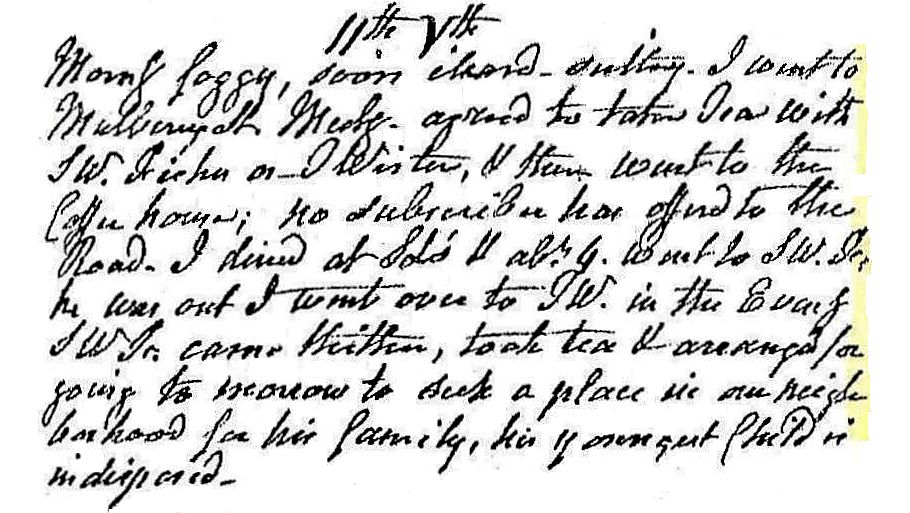 11th Vth
Morng foggy, soon cleard - sultry. I went to
Mulberryst Meetg. agreed to take Tea with
S W. Fisher or I Wister, & then went to the
Coffee house; no subscriber has offerd to the
Road. I dined at Sol's & abt. 4. went to S W. Fr.
he was out I went over to I W. in the Eveng
S W Fr. came thither, took tea & arrangd for
going to morrow to seek a place in our neigh
borhood for his family, his youngest Child is
indisposed -